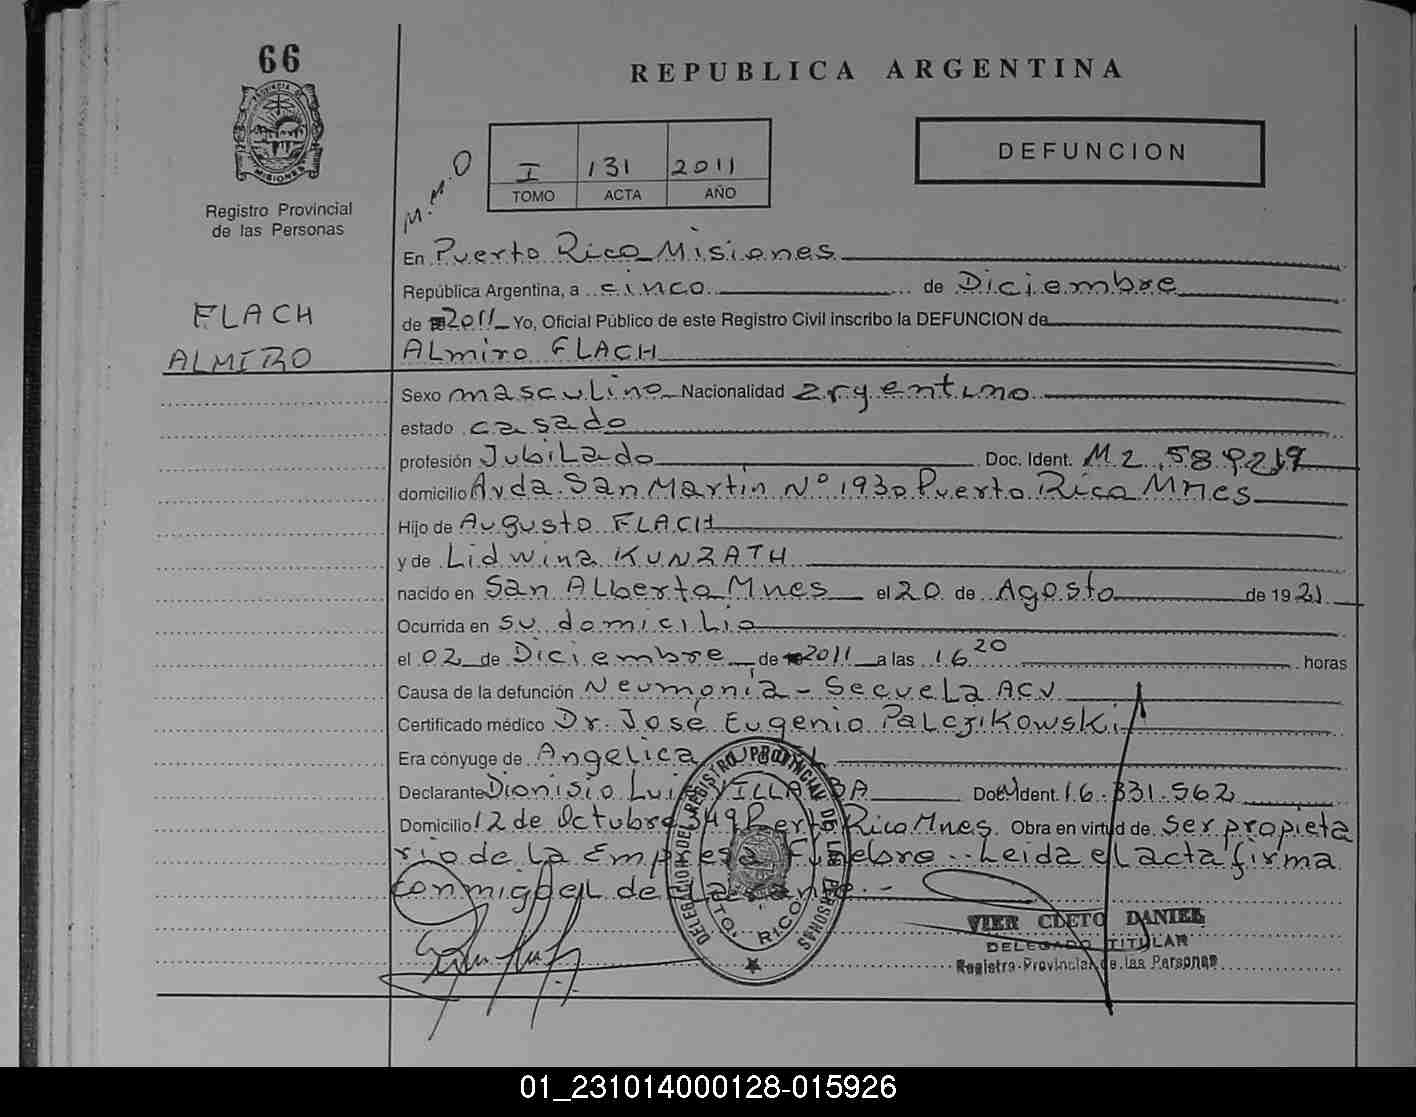 66
REPUBLICA ARGENTINA
PROVINCIA DE
MISIONES
Registro Provincial
de las Personas
M.M.O
I 131 2011
TOMO ACTA AÑO
DEFUNCION
FLACH
ALMIRO
En Puerto Rico Misiones
República Argentina, a cinco de Diciembre
de 2011 Yo, Oficial Público de este Registro Civil inscribo la DEFUNCION de
Almiro FLACH
Sexo masculino Nacionalidad argentino
estado casado
profesión Jubilado Doc. Ident. M 2.589219
domicilio Avda. San Martin N° 1930 Puerto Rico Mnes
Hijo de Augusto FLACH
y de Lidwina KUNZATH
nacido en San Alberto Mnes el 20 de Agosto de 1921
Ocurrida en su domicilio
el 02 de Diciembre de 2011 a las 16 20 horas
Causa de la defunción Neumonia - Secuela ACV
Certificado médico Dr. José Eugenio Palczikowski
Era cónyuge de Angelica
Declarante Dionisio Luis VILLALBA Doc. Ident. 16.331.562
Domicilio 12 de Octubre 49 Puerto Rico Mnes. Obra en virtud de ser propieta
rio de la Empresa Funebre.- Leida el acta firma
conmigo el declarante.-
DELEGACION DEL REGISTRO PROVINCIAL DE LAS PERSONAS
PTO. RICO
VIER CLETO DANIEL
DELEGADO TITULAR
Registro Provincial de las Personas
01_231014000128-015926